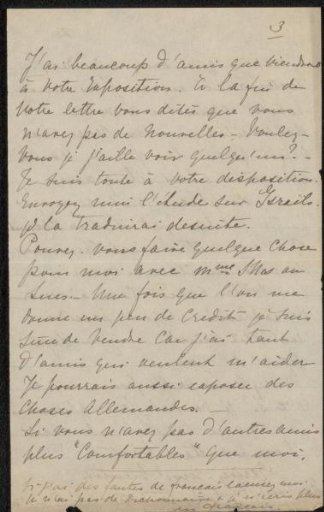 3
J'ai beaucoup d'amis que viendront
à votre Exposition. A la fin de
votre lettre vous dites que vous
n'avez pas de nouvelles - Voulez-
vous j j'aille voir quelqu'uns? -
Je suis toute à votre disposition.
Envoyez moi l'étude sur Israels.
je la traduirai desuite.
Pouvez-vous faire quelque chose
pour moi avec Mme
Une fois que l'on me
donne un peu de credit je suis
sure de vendre car j'ai tant
d'amis qui veulent m'aider
Je pourrais aussi exposer des
choses Allemandes. -
Si vous n'avez pas d'autres amis
plus "Comfortables" que moi.
Si j'ai des fautes de francais excusez moi
je n'ai pas de dictionnaire & n'écris plus
francais